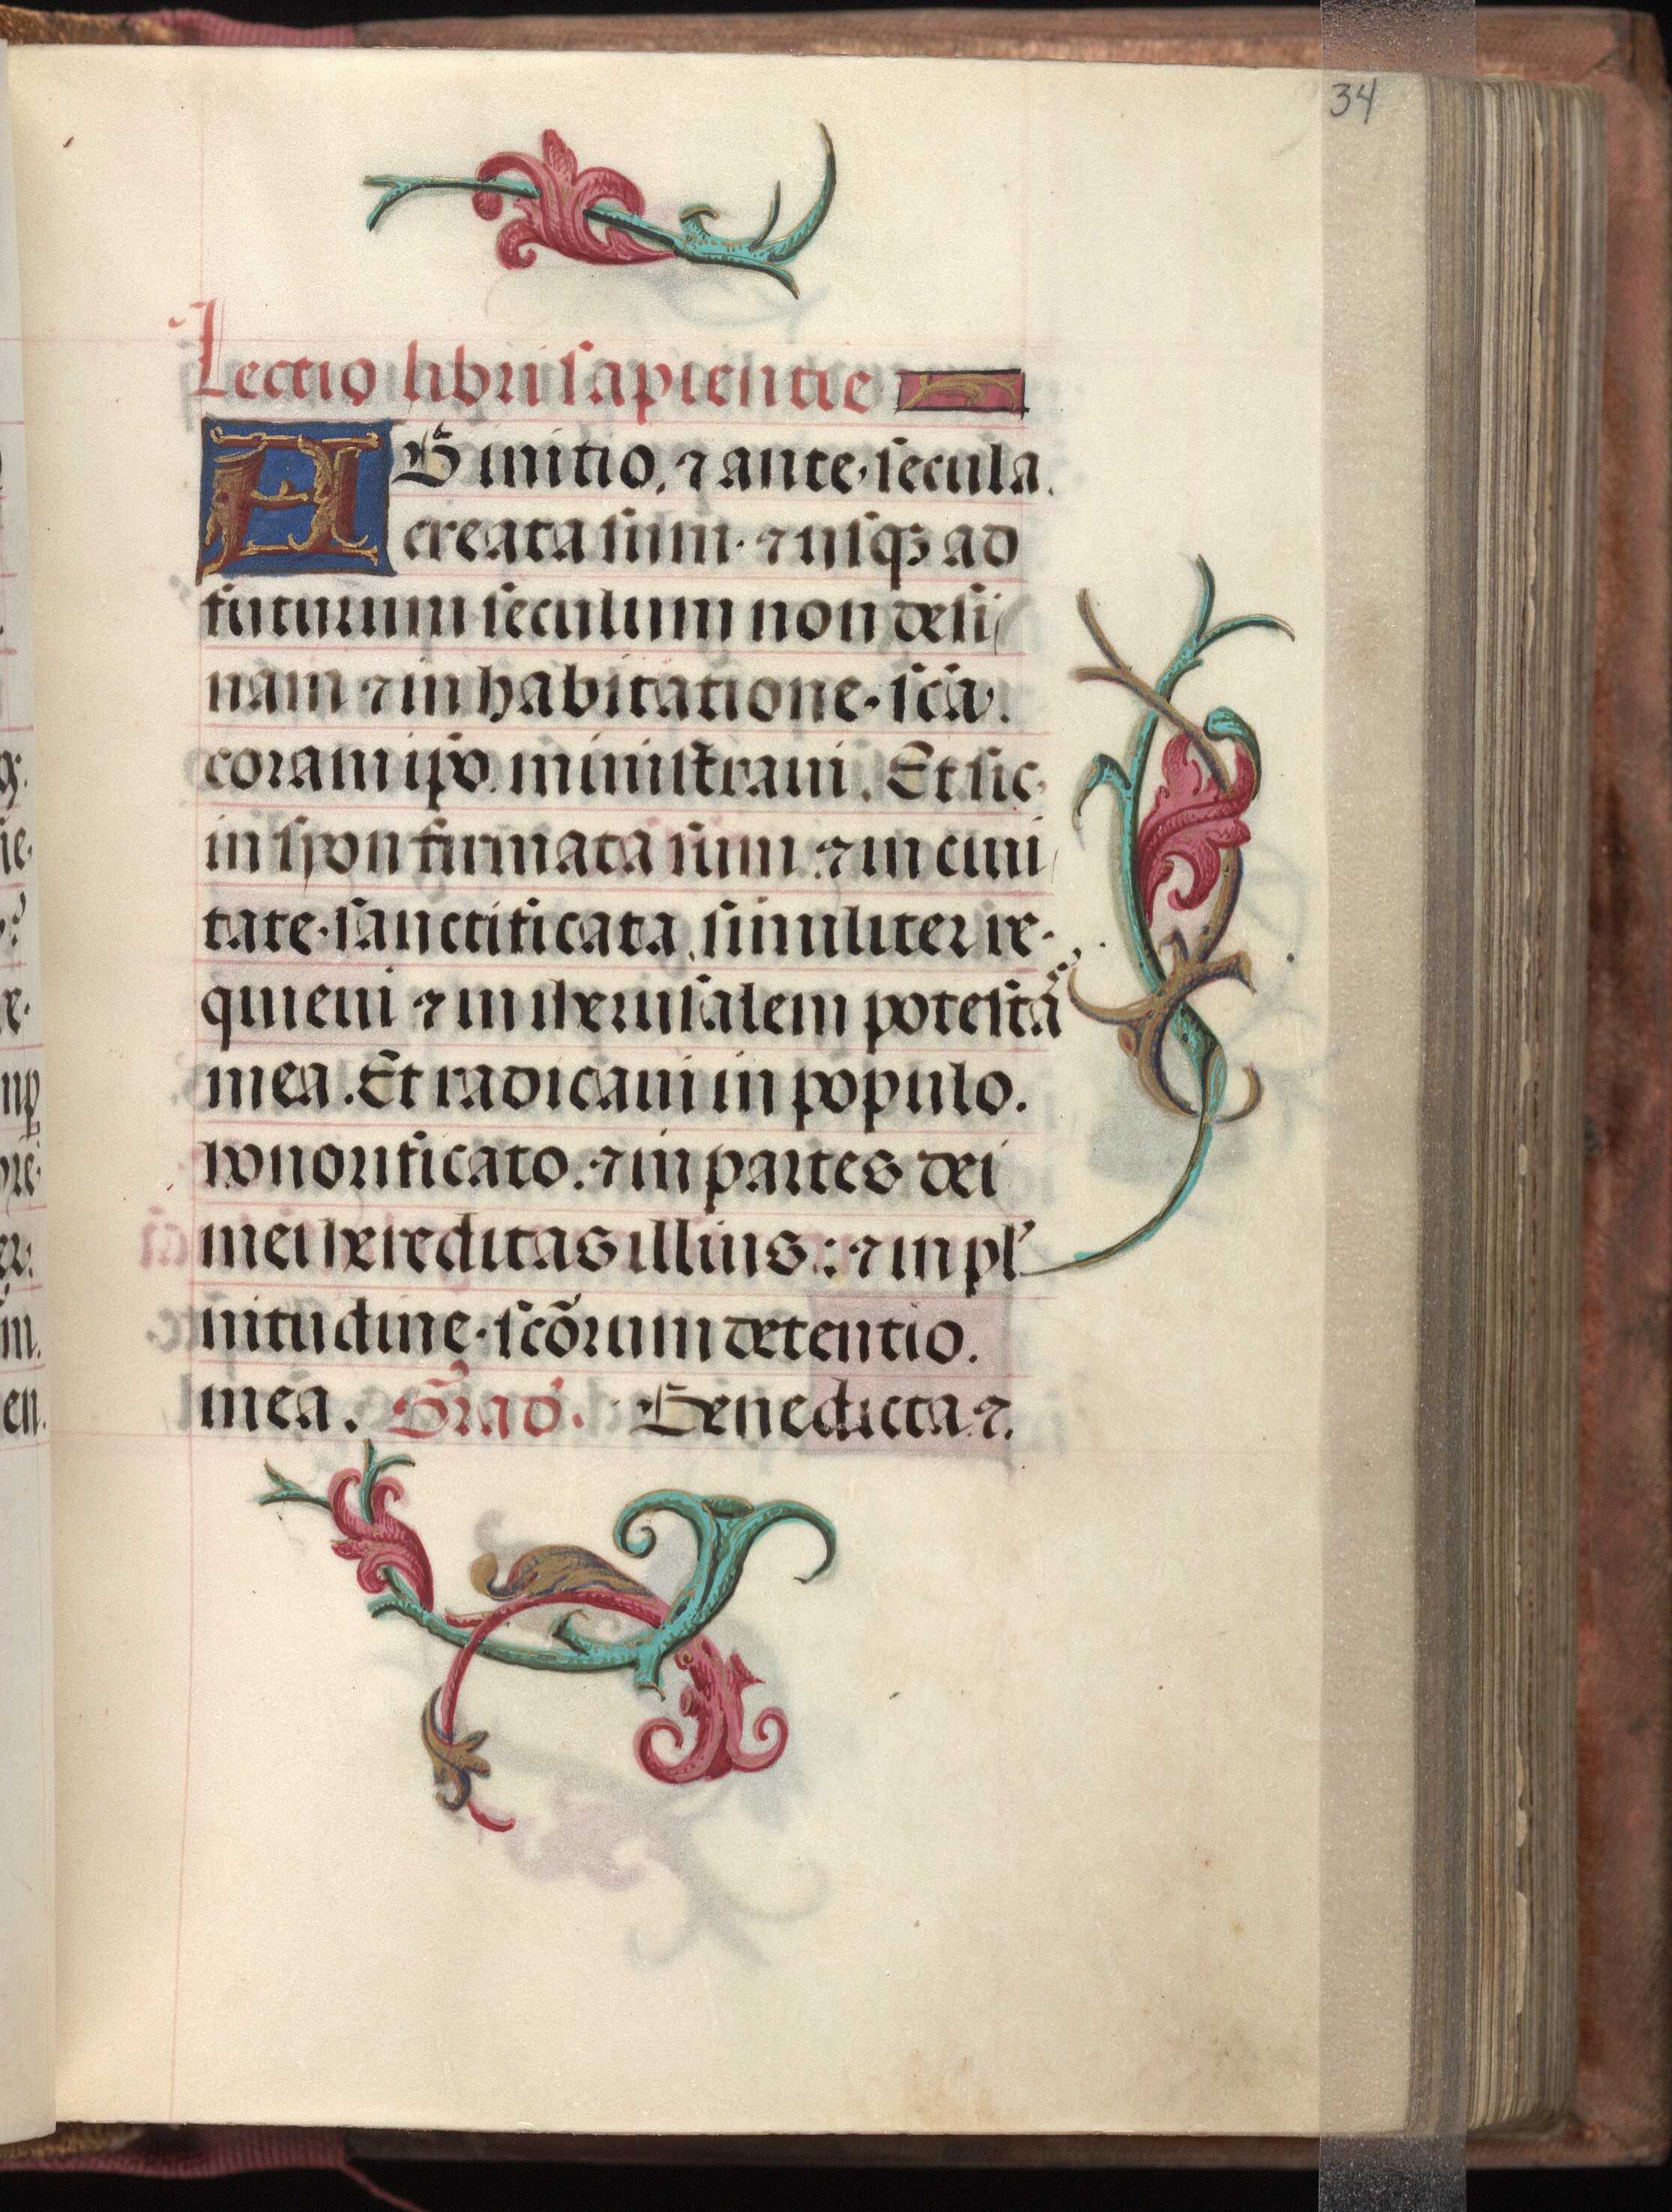 34
Lectio libri sapientie
AB initio. ⁊ ante secula.
creata sum. ⁊ usqꝫ ad
futurum seculum non desi/
nam ⁊ in habitatione. scā.
coram ip̄o. ministraui. Et sic
in syon firmata sum. ⁊ in ciui/
tate. sanctificata. similiter re-
quieui ⁊ in iherusalem potestā
mea. Et radicaui in populo.
honorificato. ⁊ in partes dei
mei hereditas illius: ⁊ in ple
nitudine. scōrum detentio.
mea. Grad'. Benedicta ⁊.